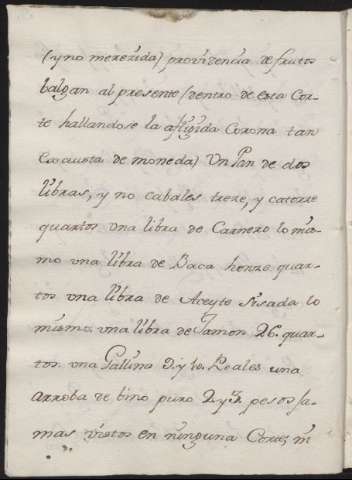 (y no merezida) providencia de frutos
balgan al presente (dentro de esta Cor-
te hallandose la afligida Corona tan
Exausta de moneda) Un Pan de dos
libras, y no cabales treze, y catorze
quartos una libra de Carnero lo mis-
mo una libra de Baca honze quar-
tos una libra de Aceyte sisada lo
mismo una libra de Jamon 26. quar-
tos. una Gallina 9. y 10. Reales una
arroba de bino puro 2 y 3. pesos ja-
mas vistos en ninguna Corte; ni